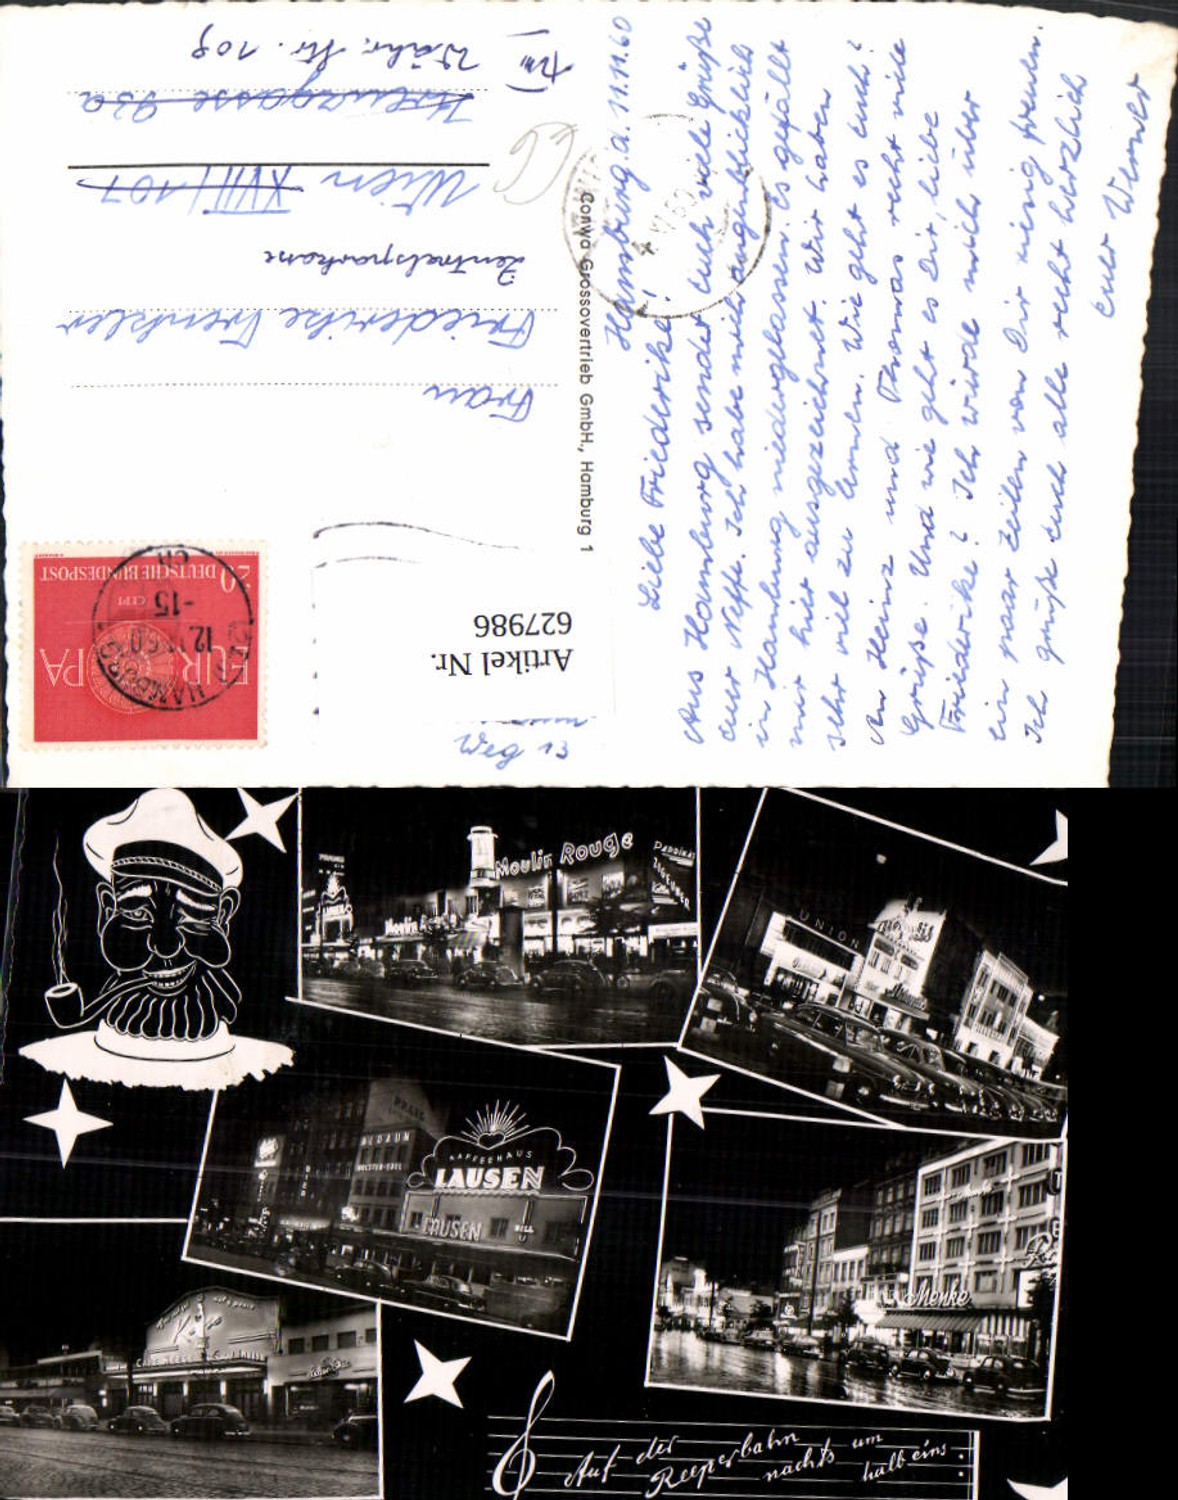 Hamburg, d. 11.11.60
Liebe Friederike!
Aus Hamburg sendet Euch viele Grüße
Euer Neffe. Ich habe mich augenblicklich
in Hamburg niedergelassen. Es gefällt
mir hier ausgezeichnet. Wir haben
sehr viel zu lernen. Wie geht es Euch?
An Heinz und Thomas recht viele
Grüße. Und wie geht es Dir, liebe
Friederike? Ich würde mich über
ein paar Zeilen von Dir riesig freuen.
Ich grüße Euch alle recht herzlich
Euer Werner
Conwa Grossovertrieb GmbH., Hamburg 1
Frau
Friederike Trenkler
Zentralsparkasse
Wien XVIII/107
Kreuzgasse 93a
Währ. Str. 109
Artikel Nr.
627986
EUROPA
CEPT
20 DEUTSCHE BUNDESPOST
HAMBURG
12.11.60
-15
Moulin Rouge
Moulin Rouge
ZIGEUNER
UNION
KAFFEEHAUS
LAUSEN
LAUSEN
Menke
CAFE KEESE
Auf der
Reeperbahn
nachts um
halb eins